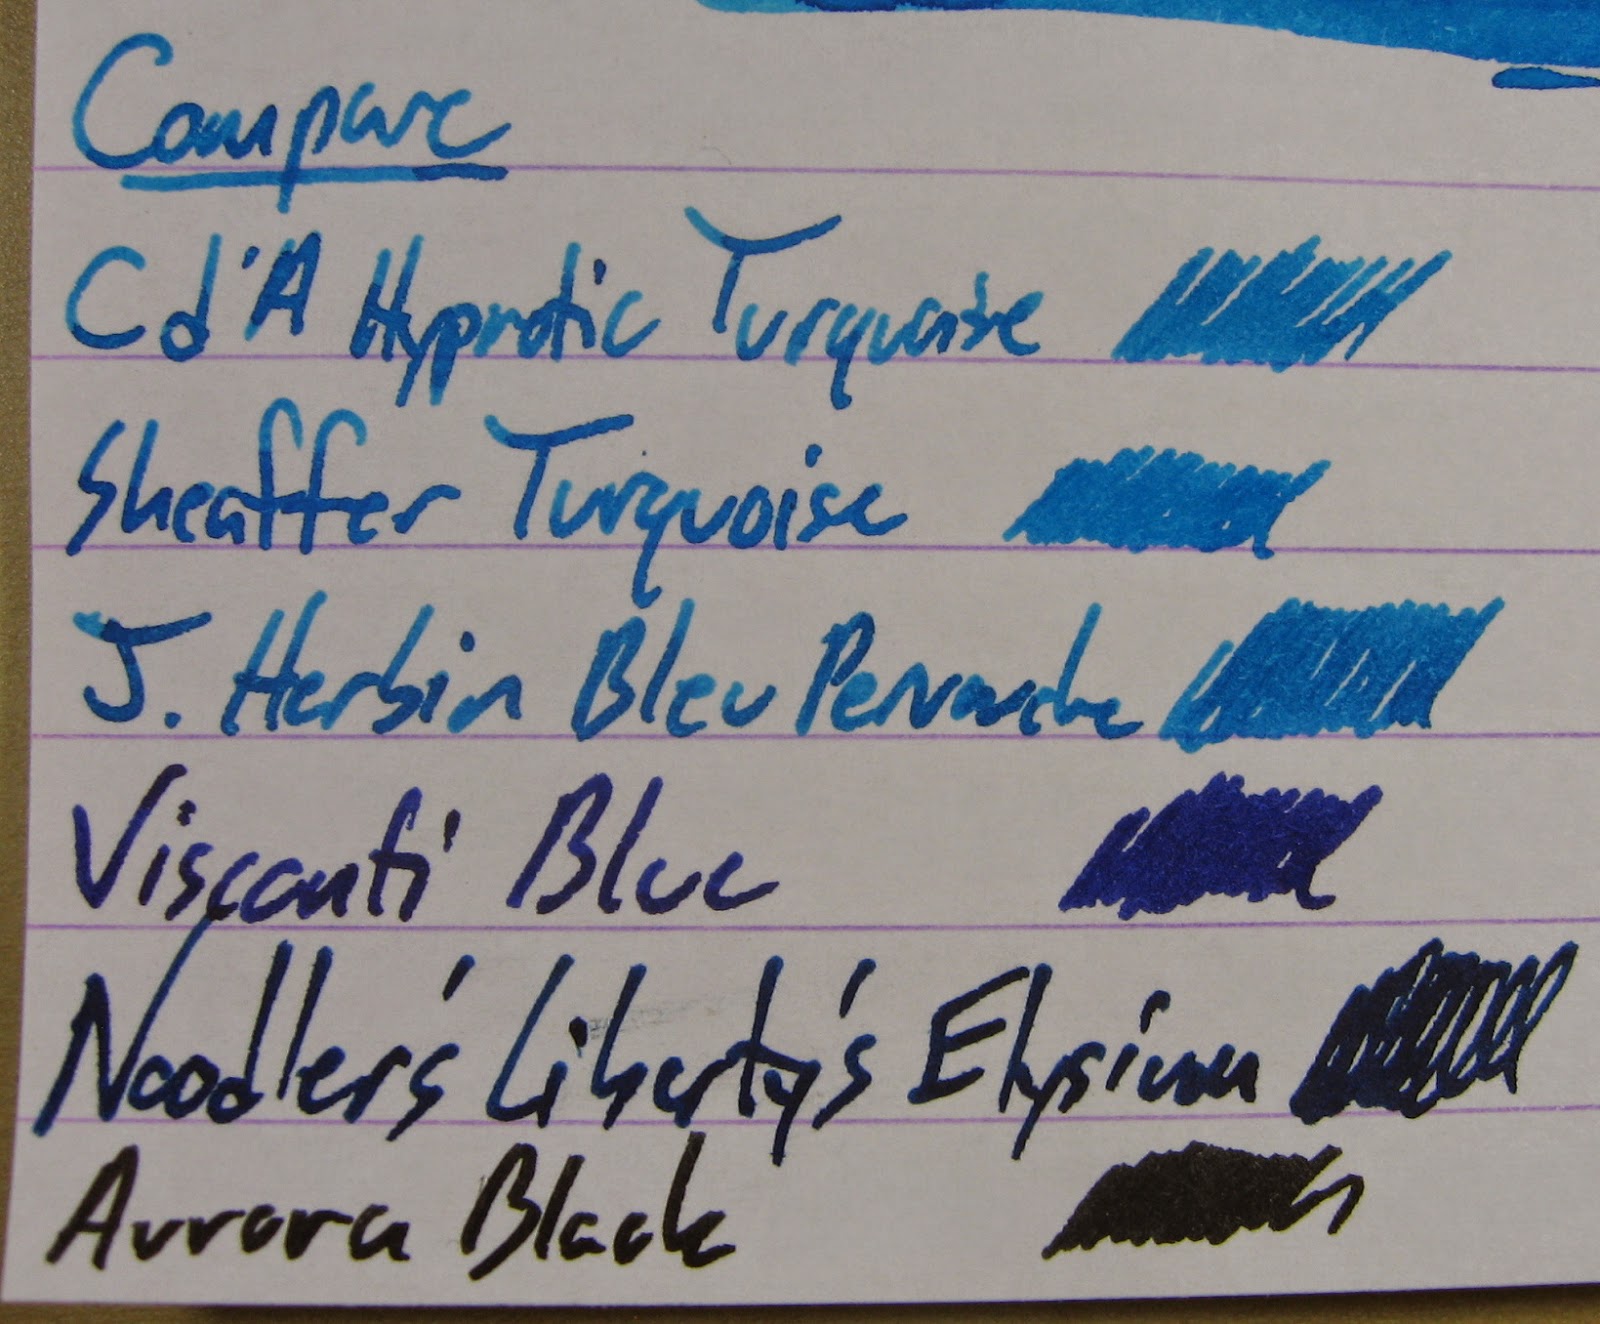 Compare
Cd'A Hypnotic Turquoise
Sheaffer Turquoise
J. Herbin Bleu Pervenche
Visconti Blue
Noodler's Liberty's Elysium
Aurora Black